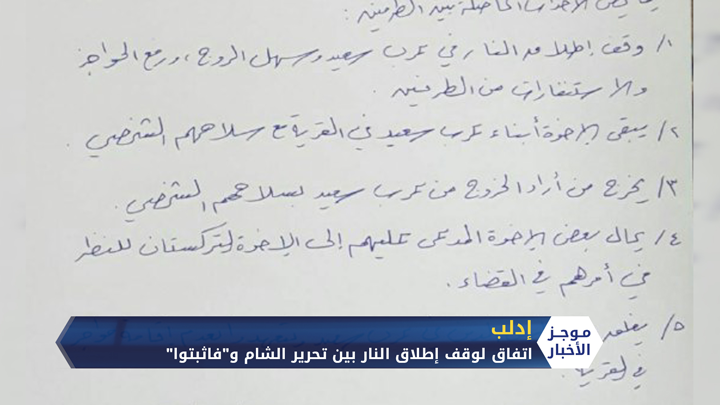 يخص الأحداث الحاصلة بين الطرفين :
١/ وقف إطلاق النار في عرب سعيد وسهل الروج ، ورفع الحواجز
والاستنفارات من الطرفين .
٢/ يبقى الإخوة أبناء عرب سعيد في القرية مع سلاحهم الشخصي .
٣/ يخرج من أراد الخروج من عرب سعيد بسلاحهم الشخصي .
٤/ يحال بعض الإخوة المدعى عليهم إلى الإخوة التركستان للنظر
في أمرهم في القضاء .
٥/ يغلق
في القرية
موجز
الأخبار
إدلب
اتفاق لوقف إطلاق النار بين تحرير الشام و"فاثبتوا"